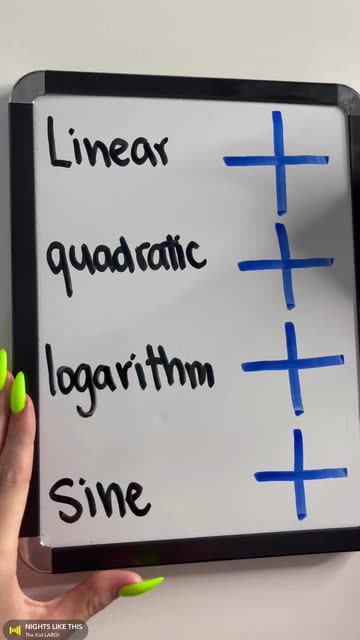 Linear
quadratic
logarithm
sine
NIGHTS LIKE THIS
The Kid LAROI